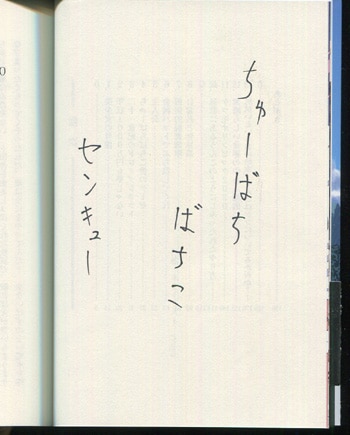 ちゅーばち
ばちこ
センキュー